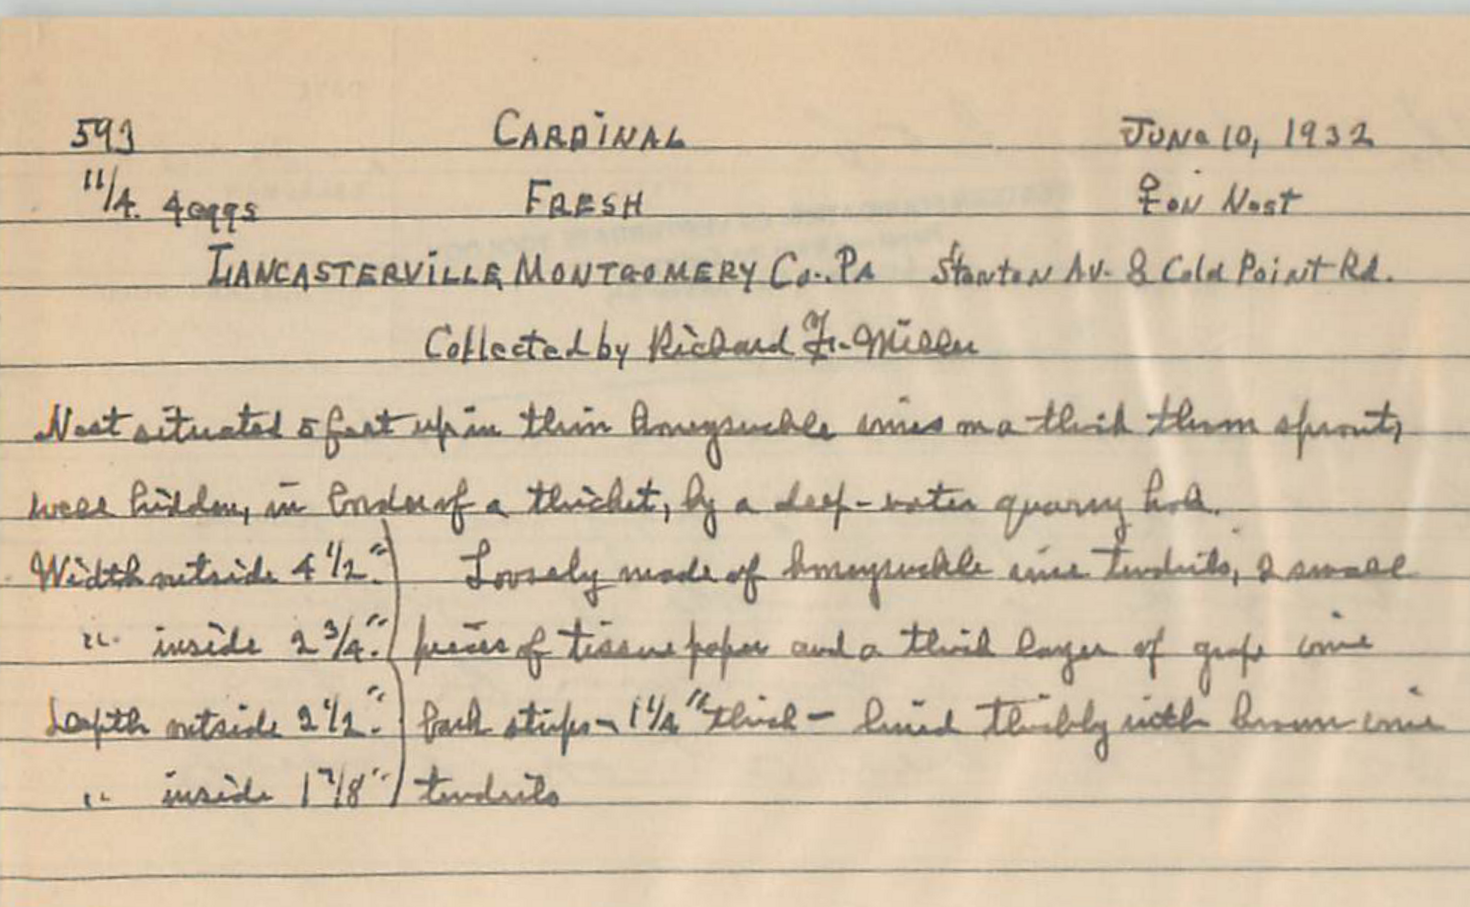 593 CARDINAL JUNe 10, 1932
11/4. 4 eggs FRESH ♀ ON Nest
LANCASTERVILLE, MONTGOMERY Co., PA Stanton Av. & Cold Point Rd.
Collected by Richard F. Miller
Nest situated 5 feet up in thin honeysuckle vines on a thick thorn sprout,
well hidden, in border of a thicket, by a deep-water quarry hole.
Width outside 4 1/2." Loosely made of honeysuckle vine tendrils, 2 small
" inside 2 3/4." pieces of tissue paper and a thick layer of grape vine
Depth outside 2 1/2." bark strips - 1 1/4" thick - lined thickly with brown vine
" inside 1 7/8" tendrils